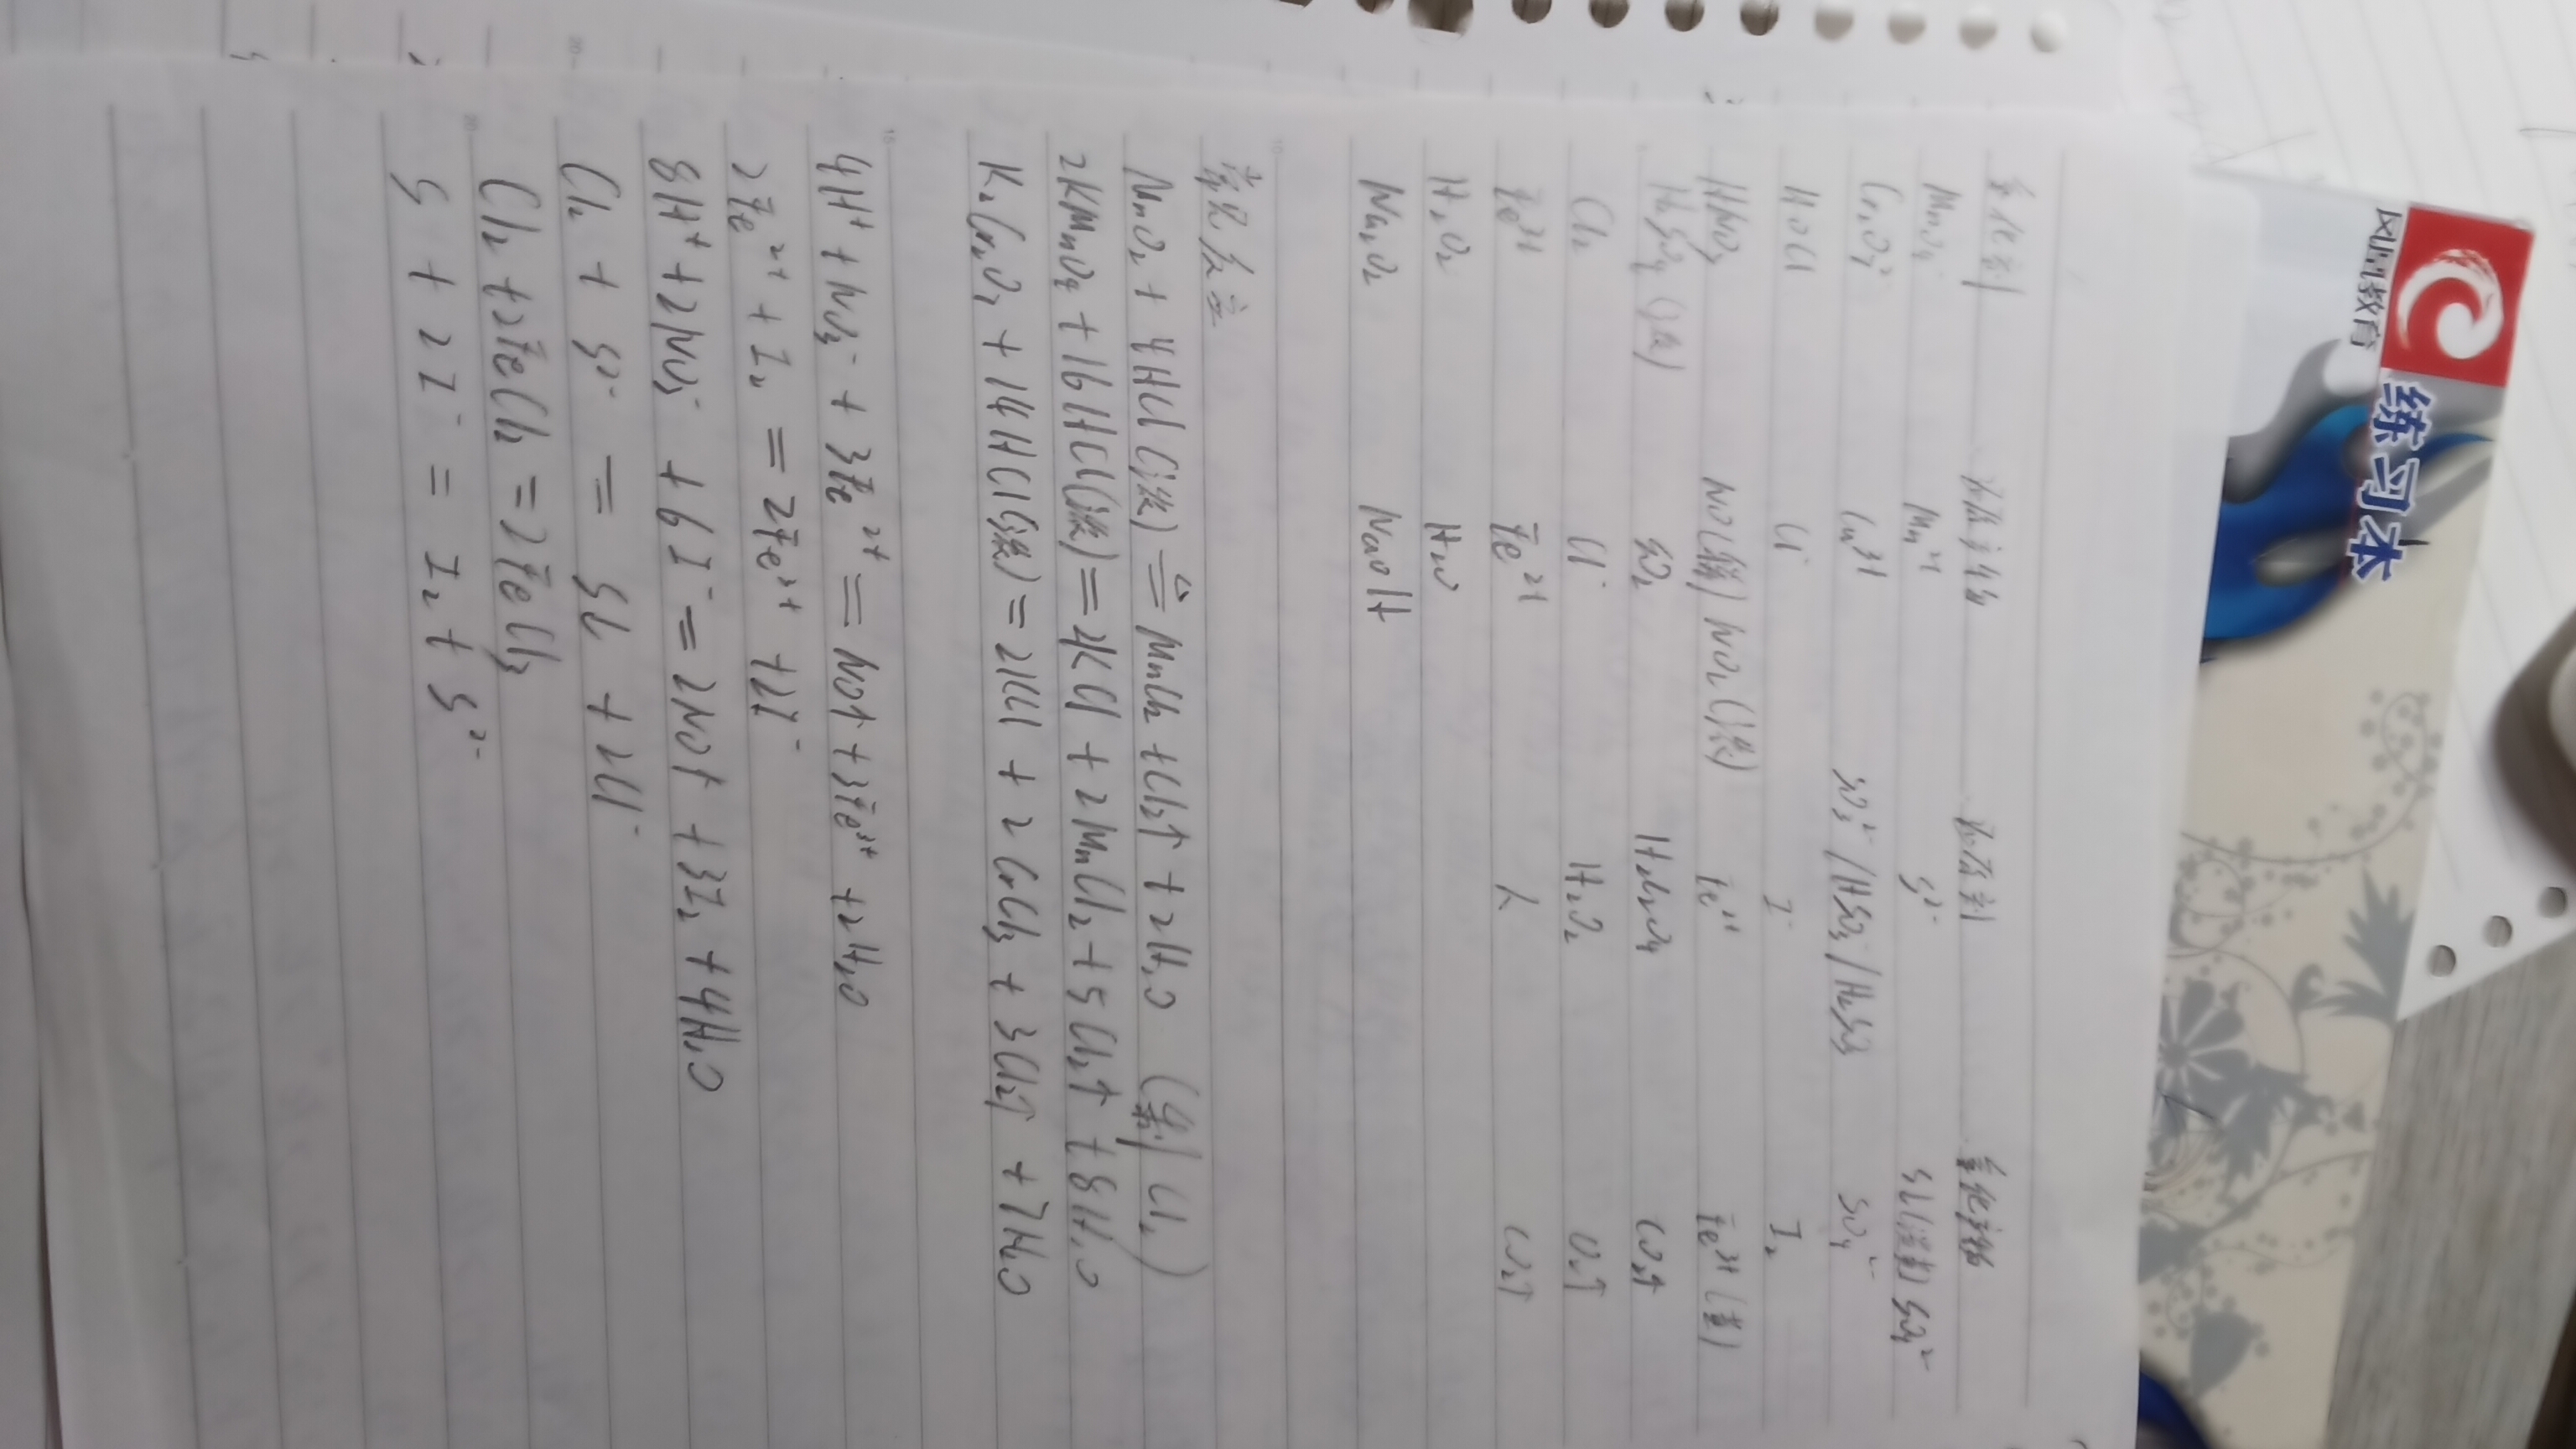 氧化剂 还原产物 还原剂 氧化产物
MnO₄⁻ Mn²⁺ S²⁻ S↓(淡黄) SO₄²⁻
Cr₂O₇²⁻ Cr³⁺ SO₃²⁻/HSO₃⁻/H₂SO₃ SO₄²⁻
HOCl Cl⁻ I⁻ I₂
HNO₃ NO(稀) NO₂(浓) Fe²⁺ Fe³⁺(黄)
H₂SO₄(浓) SO₂ H₂C₂O₄ CO₂↑
Cl₂ Cl⁻ H₂O₂ O₂↑
Fe³⁺ Fe²⁺ CO₂↑
H₂O₂ H₂O
Na₂O₂ NaOH
常见反应
MnO₂ + 4HCl(浓) ≜ MnCl₂ + Cl₂↑ + 2H₂O (制Cl₂)
2KMnO₄ + 16HCl(浓) = 2KCl + 2MnCl₂ + 5Cl₂↑ + 8H₂O
K₂Cr₂O₇ + 14HCl(浓) = 2KCl + 2CrCl₃ + 3Cl₂↑ + 7H₂O
4H⁺ + NO₃⁻ + 3Fe²⁺ = NO↑ + 3Fe³⁺ + 2H₂O
2Fe²⁺ + I₂ = 2Fe³⁺ + 2I⁻
8H⁺ + 2NO₃⁻ + 6I⁻ = 2NO↑ + 3I₂ + 4H₂O
Cl₂ + S²⁻ = S↓ + 2Cl⁻
Cl₂ + 2FeCl₂ = 2FeCl₃
S + 2I⁻ = I₂ + S²⁻
教育
练习本
10
15
20